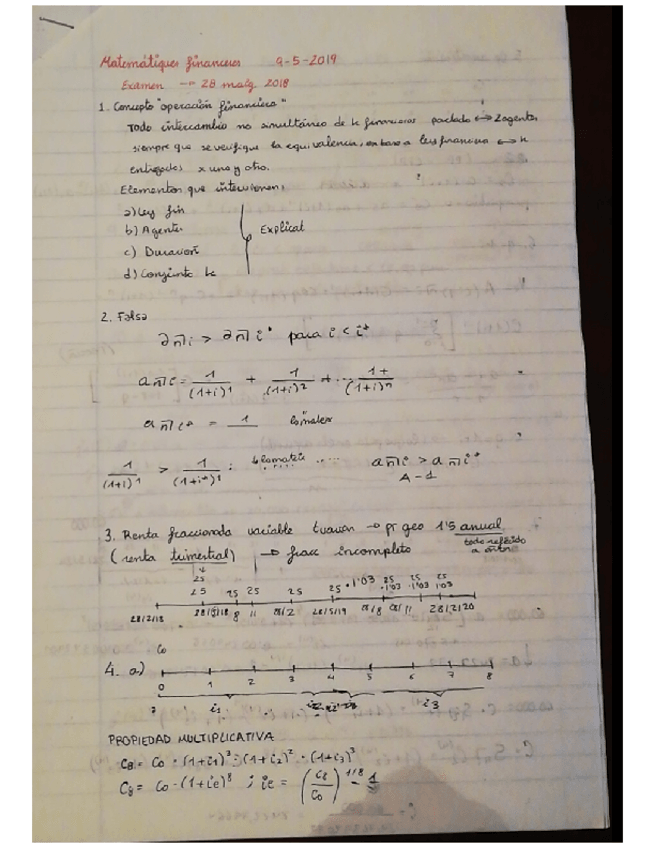 Matemàtiques financeres 9-5-2019
Examen 28 maig 2018
1. Concepto "operación financiera"
Todo intercambio no simultáneo de k financieros pactado ↔ 2 agentes
siempre que se verifique la equivalencia, en base a ley financiera ↔ k
entregados x uno y otro.
Elementos que intervienen:
a) Ley fin
b) Agentes
Explicat
c) Duración
d) Conjunto k
2. Falsa
a n̅| i > a n̅| i* para i < i*
a n̅| i = 1/(1+i)^1 + 1/(1+i)^2 + ... 1+/(1+i)^n
a n̅| i* = 1 lo mateix
1/(1+i)^1 > 1/(1+i*)^1 ; lo mateix ..... a n̅| i > a n̅| i*
A-1
3. Renta fraccionada variable → pr geo 1'5 anual
(renta trimestral) → fracc incompleto
25
25 25 25 25 25 25 ·1'03 25 ·1'03 25 ·1'03 25 1'03
28/2/18 8 11 28/2 28/5/19 28/8 28/11 28/2/20
C0
4. a)
0 1 2 3 4 5 6 7 8
7 i1 i3
PROPIEDAD MULTIPLICATIVA
C8 = C0 · (1+i1)^3 · (1+i2)^2 · (1+i3)^3
C8 = C0 · (1+ie)^8 ; ie = (C8/C0)^1/8 - 1